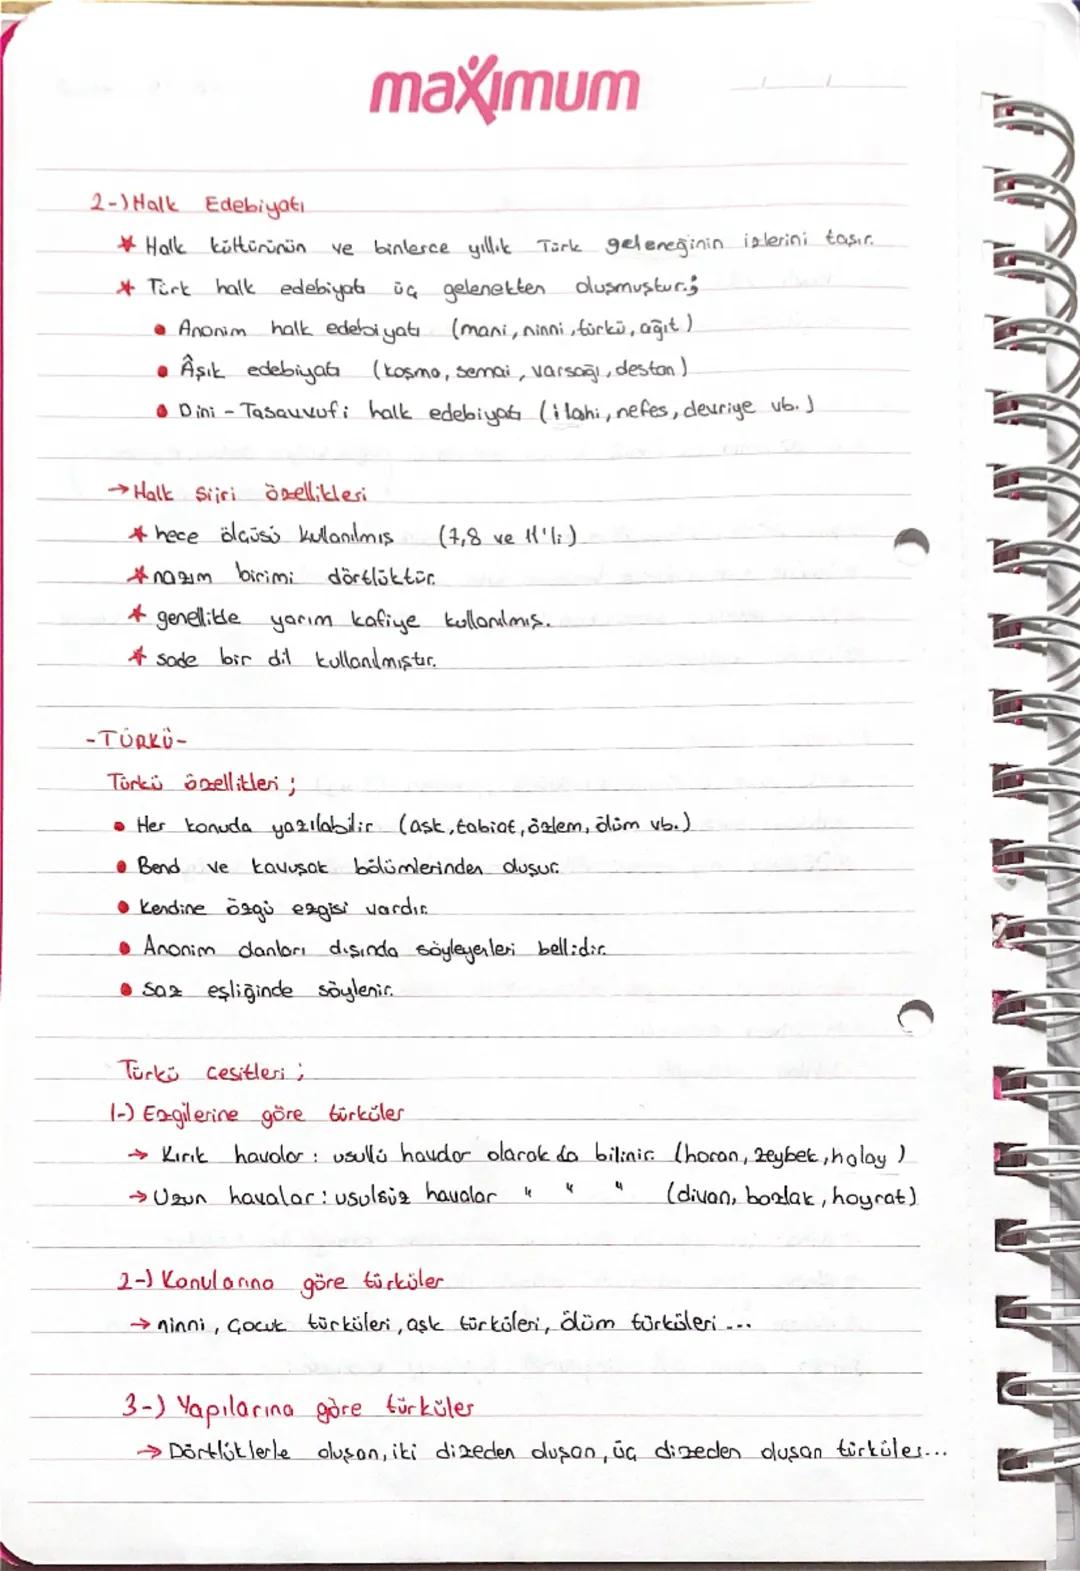 maximum
2-) Halk Edebiyatı
* Halk kültürünün ve binlerce yıllık Türk geleneğinin izlerini taşır.
* Türk halk edebiyatı üç gelenekten oluşmuştur.;
• Anonim halk edebiyatı (mani, ninni, türkü, ağıt)
• Âşık edebiyatı (koşma, semai, varsağı, destan)
• Dini - Tasavvufi halk edebiyatı (ilahi, nefes, devriye vb.)
→ Halk şiiri özellikleri
* hece ölçüsü kullanılmış (7,8 ve 11'li)
* nazım birimi dörtlüktür.
* genellikle yarım kafiye kullanılmış.
* sade bir dil kullanılmıştır.
-TÜRKÜ-
Türkü özellikleri ;
• Her konuda yazılabilir (aşk, tabiat, özlem, ölüm vb.)
• Bend ve kavuşak bölümlerinden oluşur.
• Kendine özgü ezgisi vardır.
• Anonim olanları dışında söyleyenleri bellidir.
• Saz eşliğinde söylenir.
Türkü çeşitleri ;
1-) Ezgilerine göre türküler
→ Kırık havalar : usullü havalar olarak da bilinir. (horon, zeybek, halay)
→ Uzun havalar : usulsüz havalar " " " (divan, bozlak, hoyrat)
2-) Konularına göre türküler
→ ninni, çocuk türküleri, aşk türküleri, ölüm türküleri ...
3-) Yapılarına göre türküler
→ Dörtlüklerle oluşan, iki dizeden oluşan, üç dizeden oluşan türküler...